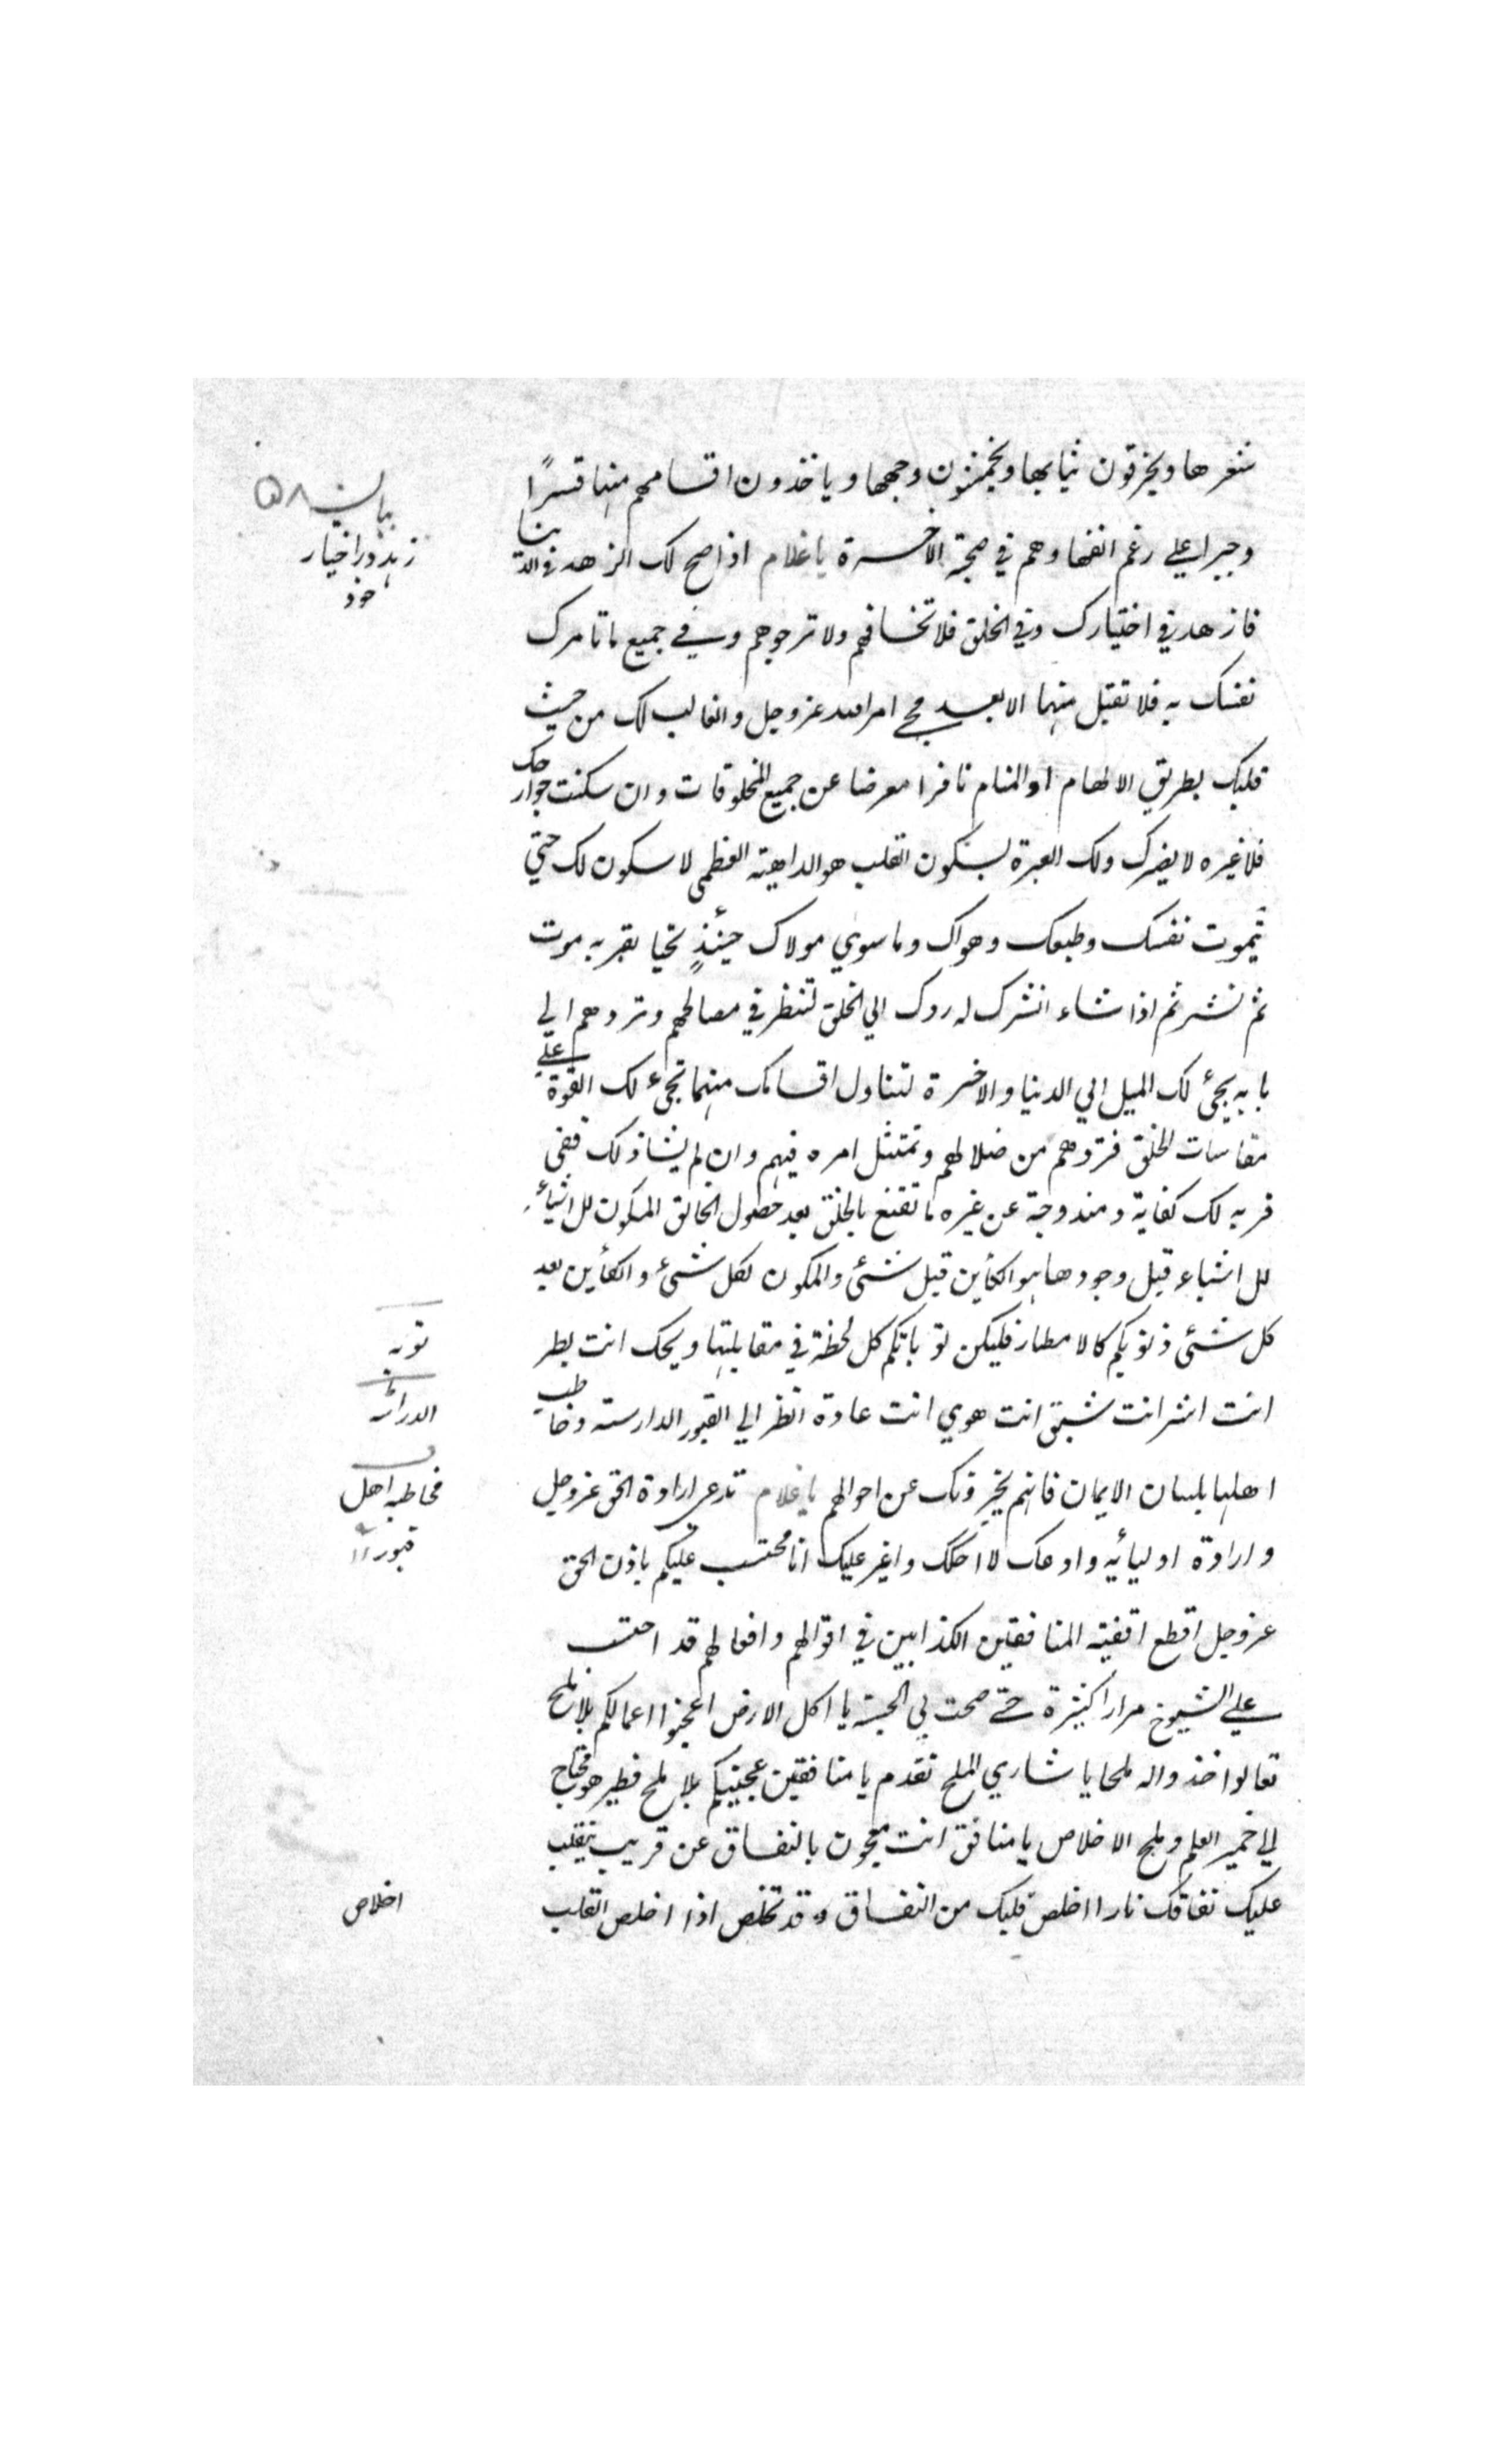 شعرها ويخرقون ثيابها ويخمشون وجهها وياخذون اقسامهم منها قسرًا
وجبرا علي رغم انفها وهم في صحبة الاخرة ياغلام اذا صح لك الزهد في الدنيا
فازهد في اختيارك وفي الخلق فلا تخافهم ولا ترجوهم وفي جميع ماتامرك
نفسك به فلا تقبل منهما الا بعد مجي امر الله عز وجل والغالب لك من حيث
قلبك بطريق الالهام او المنام نافرا معرضا عن جميع المخلوقات وان سكنت جوارحك
فلا غيره لا يضرك ولك العبرة لسكون القلب هو الداهية العظمى لا سكون لك حتي
تموت نفسك وطبعك وهواك وما سوي مولاك حينئذٍ تحيا بقربه موت
ثم نشر ثم اذا شاء انشرك له ردك الي الخلق لتنظر في مصالحهم وتردهم الي
بابه يجئ لك الميل الي الدنيا والاخرة لتناول اقسامك منهما تجيء لك القوة علي
مقاسات الخلق فتردهم من ضلالهم وتمتثل امره فيهم وان لم يشا ذلك ففي
قربه لك كفاية ومندوحة عن غيره ما تقنع بالخلق بعد حصول الخالق المكون للاشياء
للاشياء قبل وجودها هو الكأين قبل شئي والمكون لكل شئ والكأين بعد
كل شئي ذنوبكم كالامطار فليكن توباتكم كل لحظة في مقابلتها ويحك انت بطر
انت اشر انت شبق انت هوي انت عادة انظر الي القبور الدارسته وخاطب
اهلها بلسان الايمان فانهم يخبرونك عن احوالهم ياغلام تدعي ارادة الحق عز وجل
وارادة اوليائيه وادعك لا احكك واغير عليك انا محتسب عليكم باذن الحق
عز وجل اقطع اقفيته المنافقين الكذابين في اقوالهم وافعالهم قد احتسب
علي الشيوخ مرارا كثيرة حتے صحت بي الحسبة يا اكل الارض اعجنوا اعمالكم بلا ملح
تعالوا خذوا له ملحا يا شاري الملح تقدم يا منافقين عجينكم بلا ملح فطير هو محتاج
الي خمير العلم وملح الاخلاص يا منافق انت معجون بالنفاق عن قريب ينقلب
عليك نفاقك نارا اخلص قلبك من النفاق وقد تخلص اذا اخلص القلب
بيان ٥٨
زہد در اختیار
خود
توبہ
مخاطبہ اهل
قبور
اخلاص